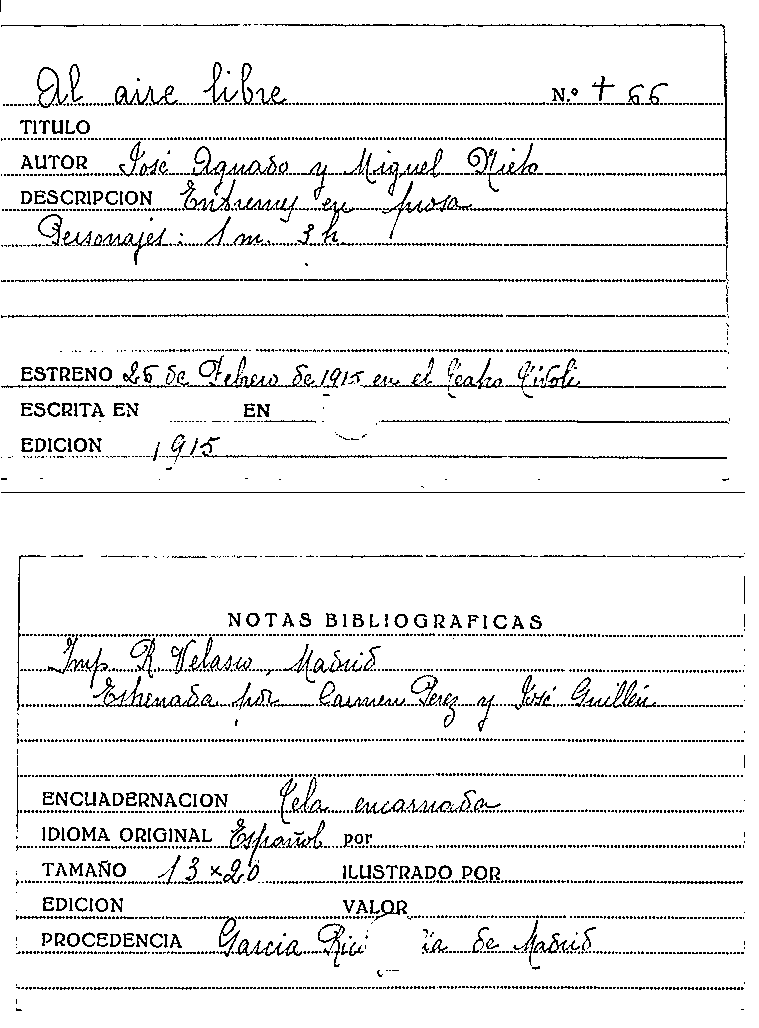 Al aire libre N.º + 66
TITULO
AUTOR José Aguado y Miguel Nieto
DESCRIPCION Entremes en prosa
Personajes: 1 m. 3 h.
ESTRENO 25 de Febrero de 1915 en el Teatro Tívoli
ESCRITA EN EN
EDICION 1915
NOTAS BIBLIOGRAFICAS
Imp. R. Velasco, Madrid
Estrenada por Carmen Perez y José Guillén
ENCUADERNACION Tela encarnada
IDIOMA ORIGINAL Español por
TAMAÑO 13 x 20 ILUSTRADO POR
EDICION VALOR
PROCEDENCIA Garcia de Madrid